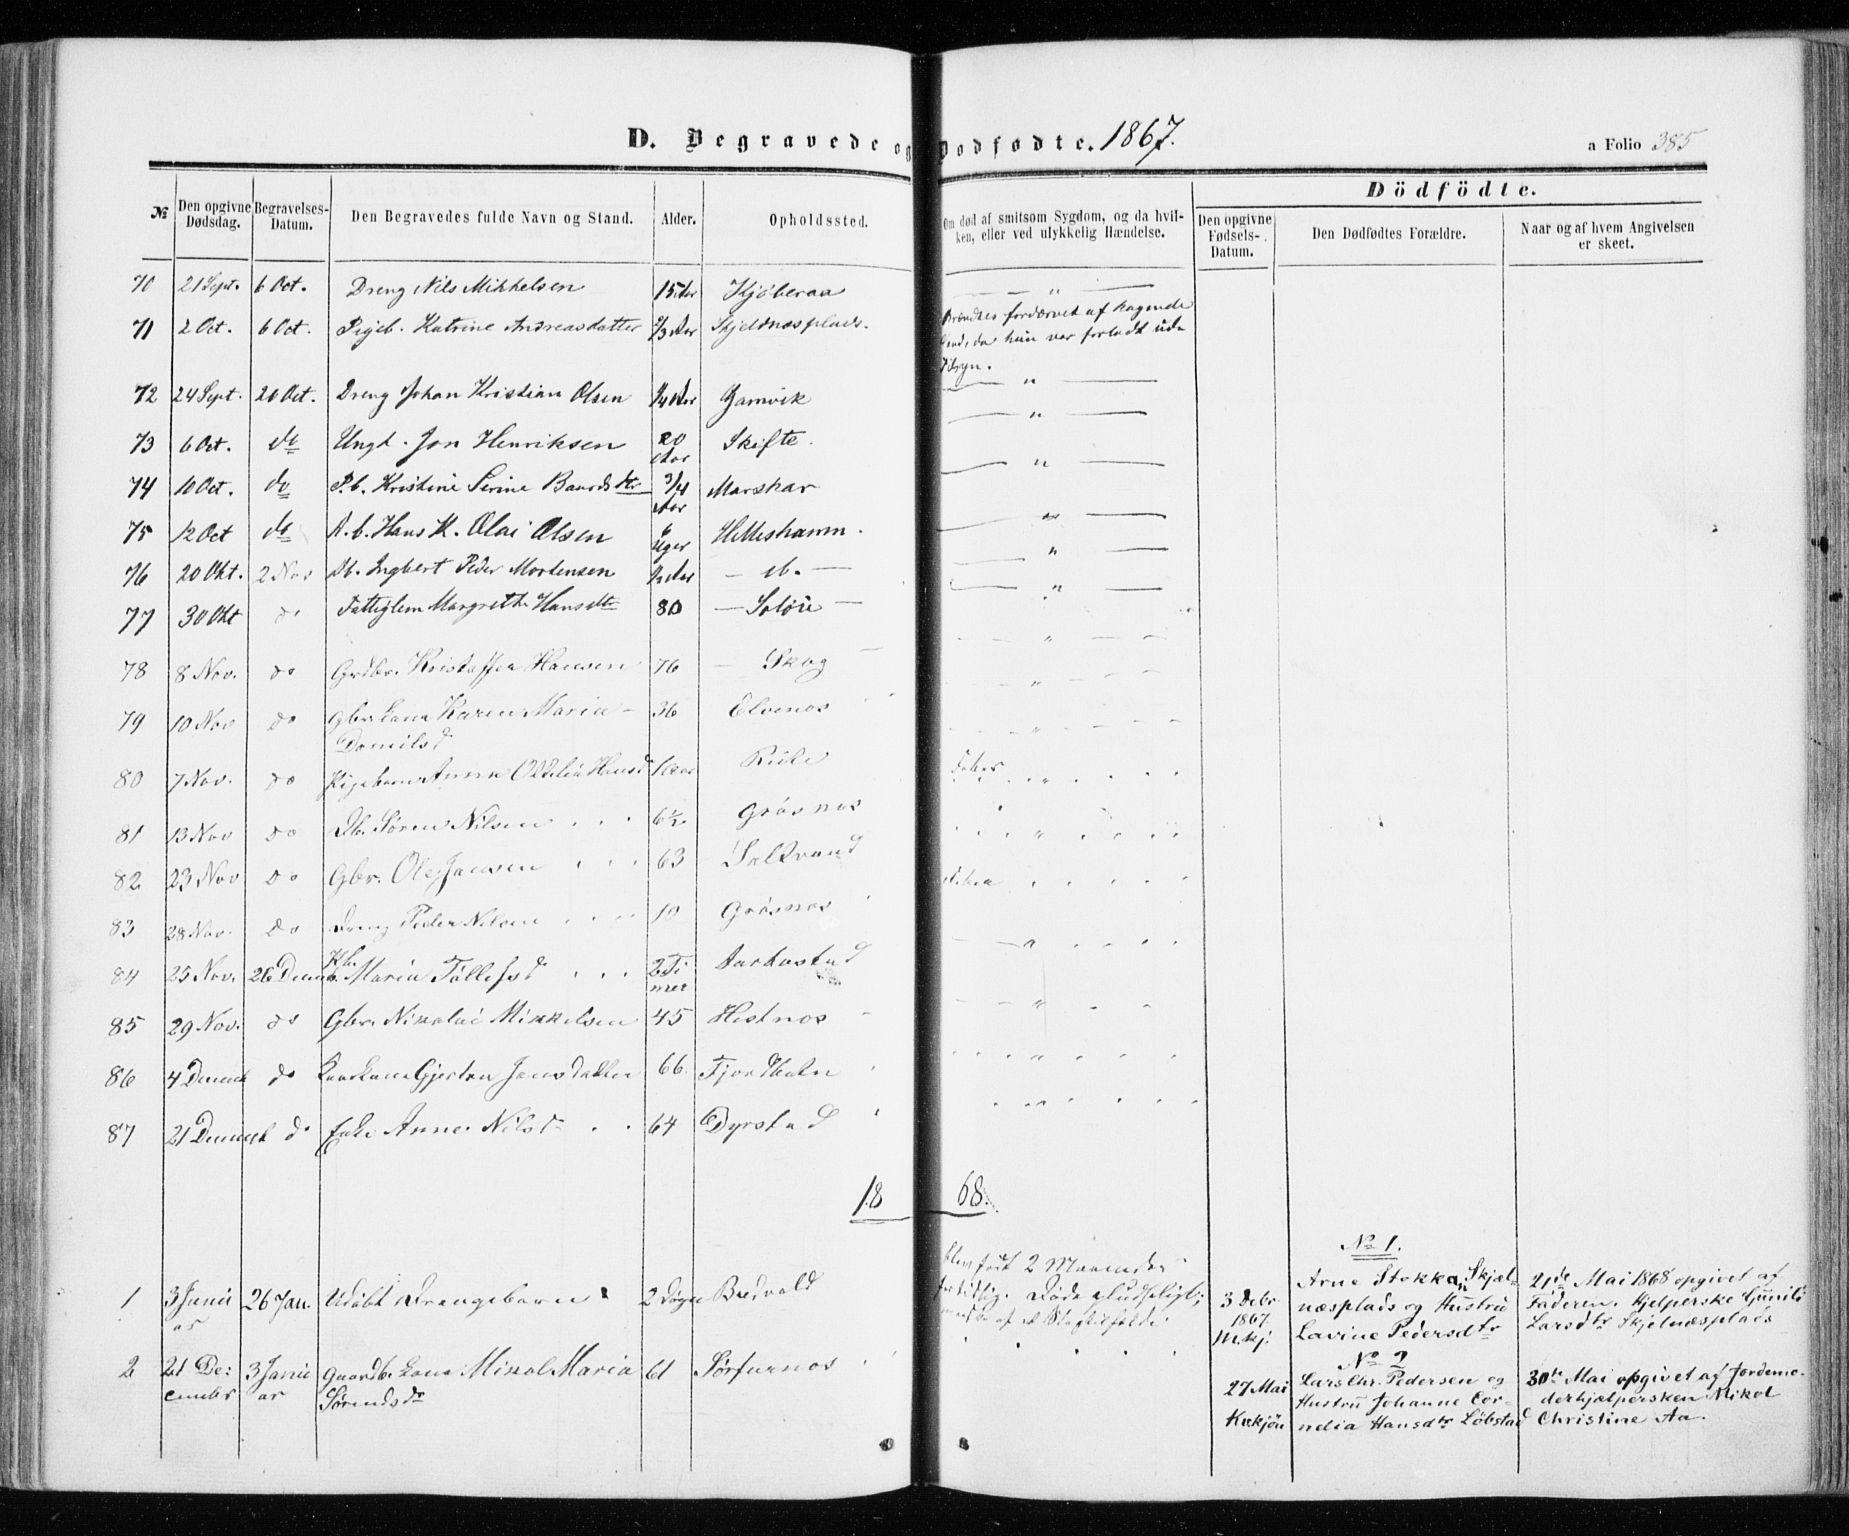 D. Begravede og Dødfødte. 1867.
a Folio 385
Dödfödte.
№ Den opgivne Dødsdag. Begravelses-Datum. Den Begravedes fulde Navn og Stand. Alder. Opholdssted. Om død af smitsom Sygdom, og da hvilken, eller ved ulykkelig Hændelse. Den opgivne Fødsels-Datum. Den Dødfødtes Forældre. Naar og af hvem Angivelsen er skeet.
70 21 Sept. 6 Oct. Dreng Nils Mikkelsen 15 Aar Kjøberaa — " —
71 2 Oct. 6 Oct. Pigeb. Katrine Andreasdatter Aar Skjeldnæsplads.
hun var forladt uden
Tilsyn.
72 24 Sept. 20 Oct. Dreng Johan Kristian Olsen 1/4 Aar Gamvik — " —
73 6 Oct. do Ungk. Jon Henriksen 20 Aar Skifte. — " —
74 10 Oct. do P.b. Kristine Serine Baardsdtr 3/4 Aar Marskar — " —
75 12 Oct do D.b. Hans K. Olai Olsen 6 Uger Hellishamn. — " —
76 20 Okt. 2 Nov Db. Ingbert Peder Mortensen 1/2 Aar — do. — — " —
77 30 Okt do Fattiglem Margrethe Hansdtr 80 — Soløie — — " —
78 8 Nov. do Grdbr. Kristoffer Hansen 76 — Skog — — " —
79 10 Nov do Gbr. Kone Karen Maria Danielsd 36 Elvenos — " —
80 7 Nov. do Pigebarn Anna Oldelia Hansd
81 13 Nov do Db. Sören Nilsen 6½ Gråsnos "
82 23 Nov do Gbr. Ole Jensen 63 Saltvand "
83 28 Nov. do Dreng Peder Nilsen 10 Gråsnos
84 25 Nov. 26 Decemb. Maria Tollefsd 2 Timer Aarbostad
85 29 Nov. do Gbr. Nikolai Mikkelsen 45 Hestnos — " —
86 4 Decemb do Jensdatter 66 Fjordbotn
87 21 Decemb do Enke Anne Nilsd 64 Dyrstad
1868.
1 3 Januar 26 Jan. Udöbt Drengebarn 2 Døgn Budvold
født 2 Maaneder
for tidlig.
2 21 December 3 Januar Gaardb. Kone Mikal Maria Sörensdr 61 Sørfurnos
No 1.
3 Debr 1867. M.kj.
Arne Stokkan, Skjæl-
næsplads og Hustru
Lavine Pedersdtr
21de Mai 1868 opgivet af
Faderen. Hjelperske Gunild
Larsdtr Skjelnæsplads
No 2
27 Mai
Lars Chr. Pedersen og
Hustru Johanne Cor-
nelia Hansdtr Løbstad
30te Mai opgivet af Jordemo-
derhjælpersken Mikal
Christine Aa.